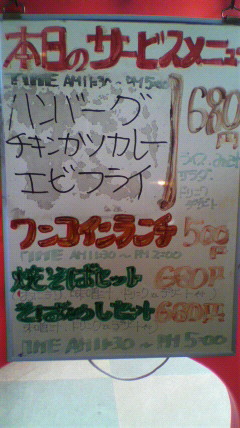 本日のサービスメニュー
TIME AM11:30～PM5:00
ハンバーグ
チキンカツカレー
エビフライ
680円
サラダ
ドリンク
デザート
ワンコインランチ 500円
TIME AM11:30～PM2:00
焼そばセット 660円
そばめしセット 660円
TIME AM11:30～PM5:00